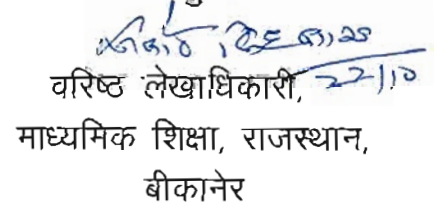 22/10
वरिष्ठ लेखाधिकारी,
माध्यमिक शिक्षा, राजस्थान,
बीकानेर